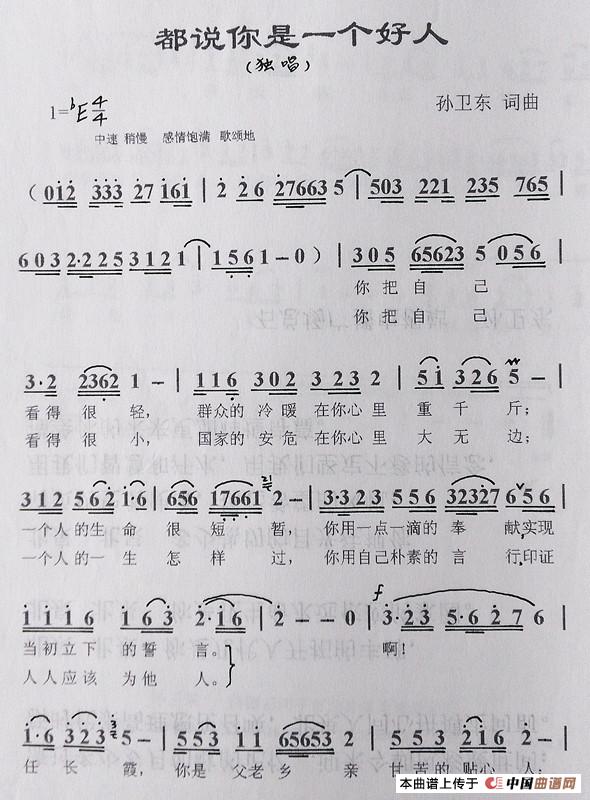 都说你是一个好人
(独唱)
1=♭E 4/4
孙卫东 词曲
中速 稍慢 感情饱满 歌颂地
(012 333 27 161 | 2 26 27663 5 | 503 221 235 765 |
6032·225 3121 | 1561-0) | 305 65623 5 056 |
你把自 己
你把自 己
3·2 2362 1- | 116 302 3 23 2 | 51 326 5- |
看得很轻, 群众的冷暖在你心里重千斤;
看得很小, 国家的安危在你心里大无边;
312 562 1·6 | 656 17661 2- | 3·323 556 32327 656 |
一个人的生命很短暂, 你用一点一滴的奉献实现
一个人的一生怎样过, 你用自己朴素的言行印证
f
1 1 1 6 1 63 2·16 | 2--0 | 3·23 5·6 27 6 |
当初立下的誓言。 啊!
人人应该为他人。
1·6 323 5- | 553 1 1 65653 2 | 2 553 2 1
任长霞, 你是父老乡亲甘苦的贴心人;
本曲谱上传于 中国曲谱网